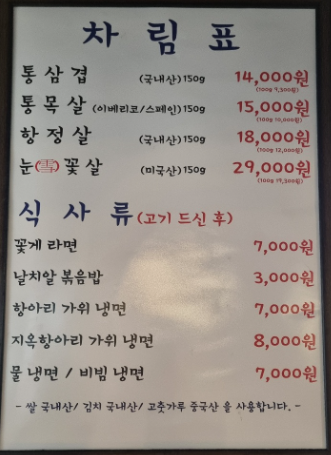 차 림 표
통 삼 겹 (국내산) 150g 14,000원
(100g 9,300원)
통 목 살 (이베리코/스페인) 150g 15,000원
(100g 10,000원)
항 정 살 (국내산) 150g 18,000원
(100g 12,000원)
눈(雪)꽃 살 (미국산) 150g 29,000원
(100g 19,300원)
식 사 류 (고기 드신 후)
꽃게 라면 7,000원
날치알 볶음밥 3,000원
항아리 가위 냉면 7,000원
지옥항아리 가위 냉면 8,000원
물 냉면 / 비빔 냉면 7,000원
- 쌀 국내산/ 김치 국내산/ 고춧가루 중국산 을 사용합니다. -